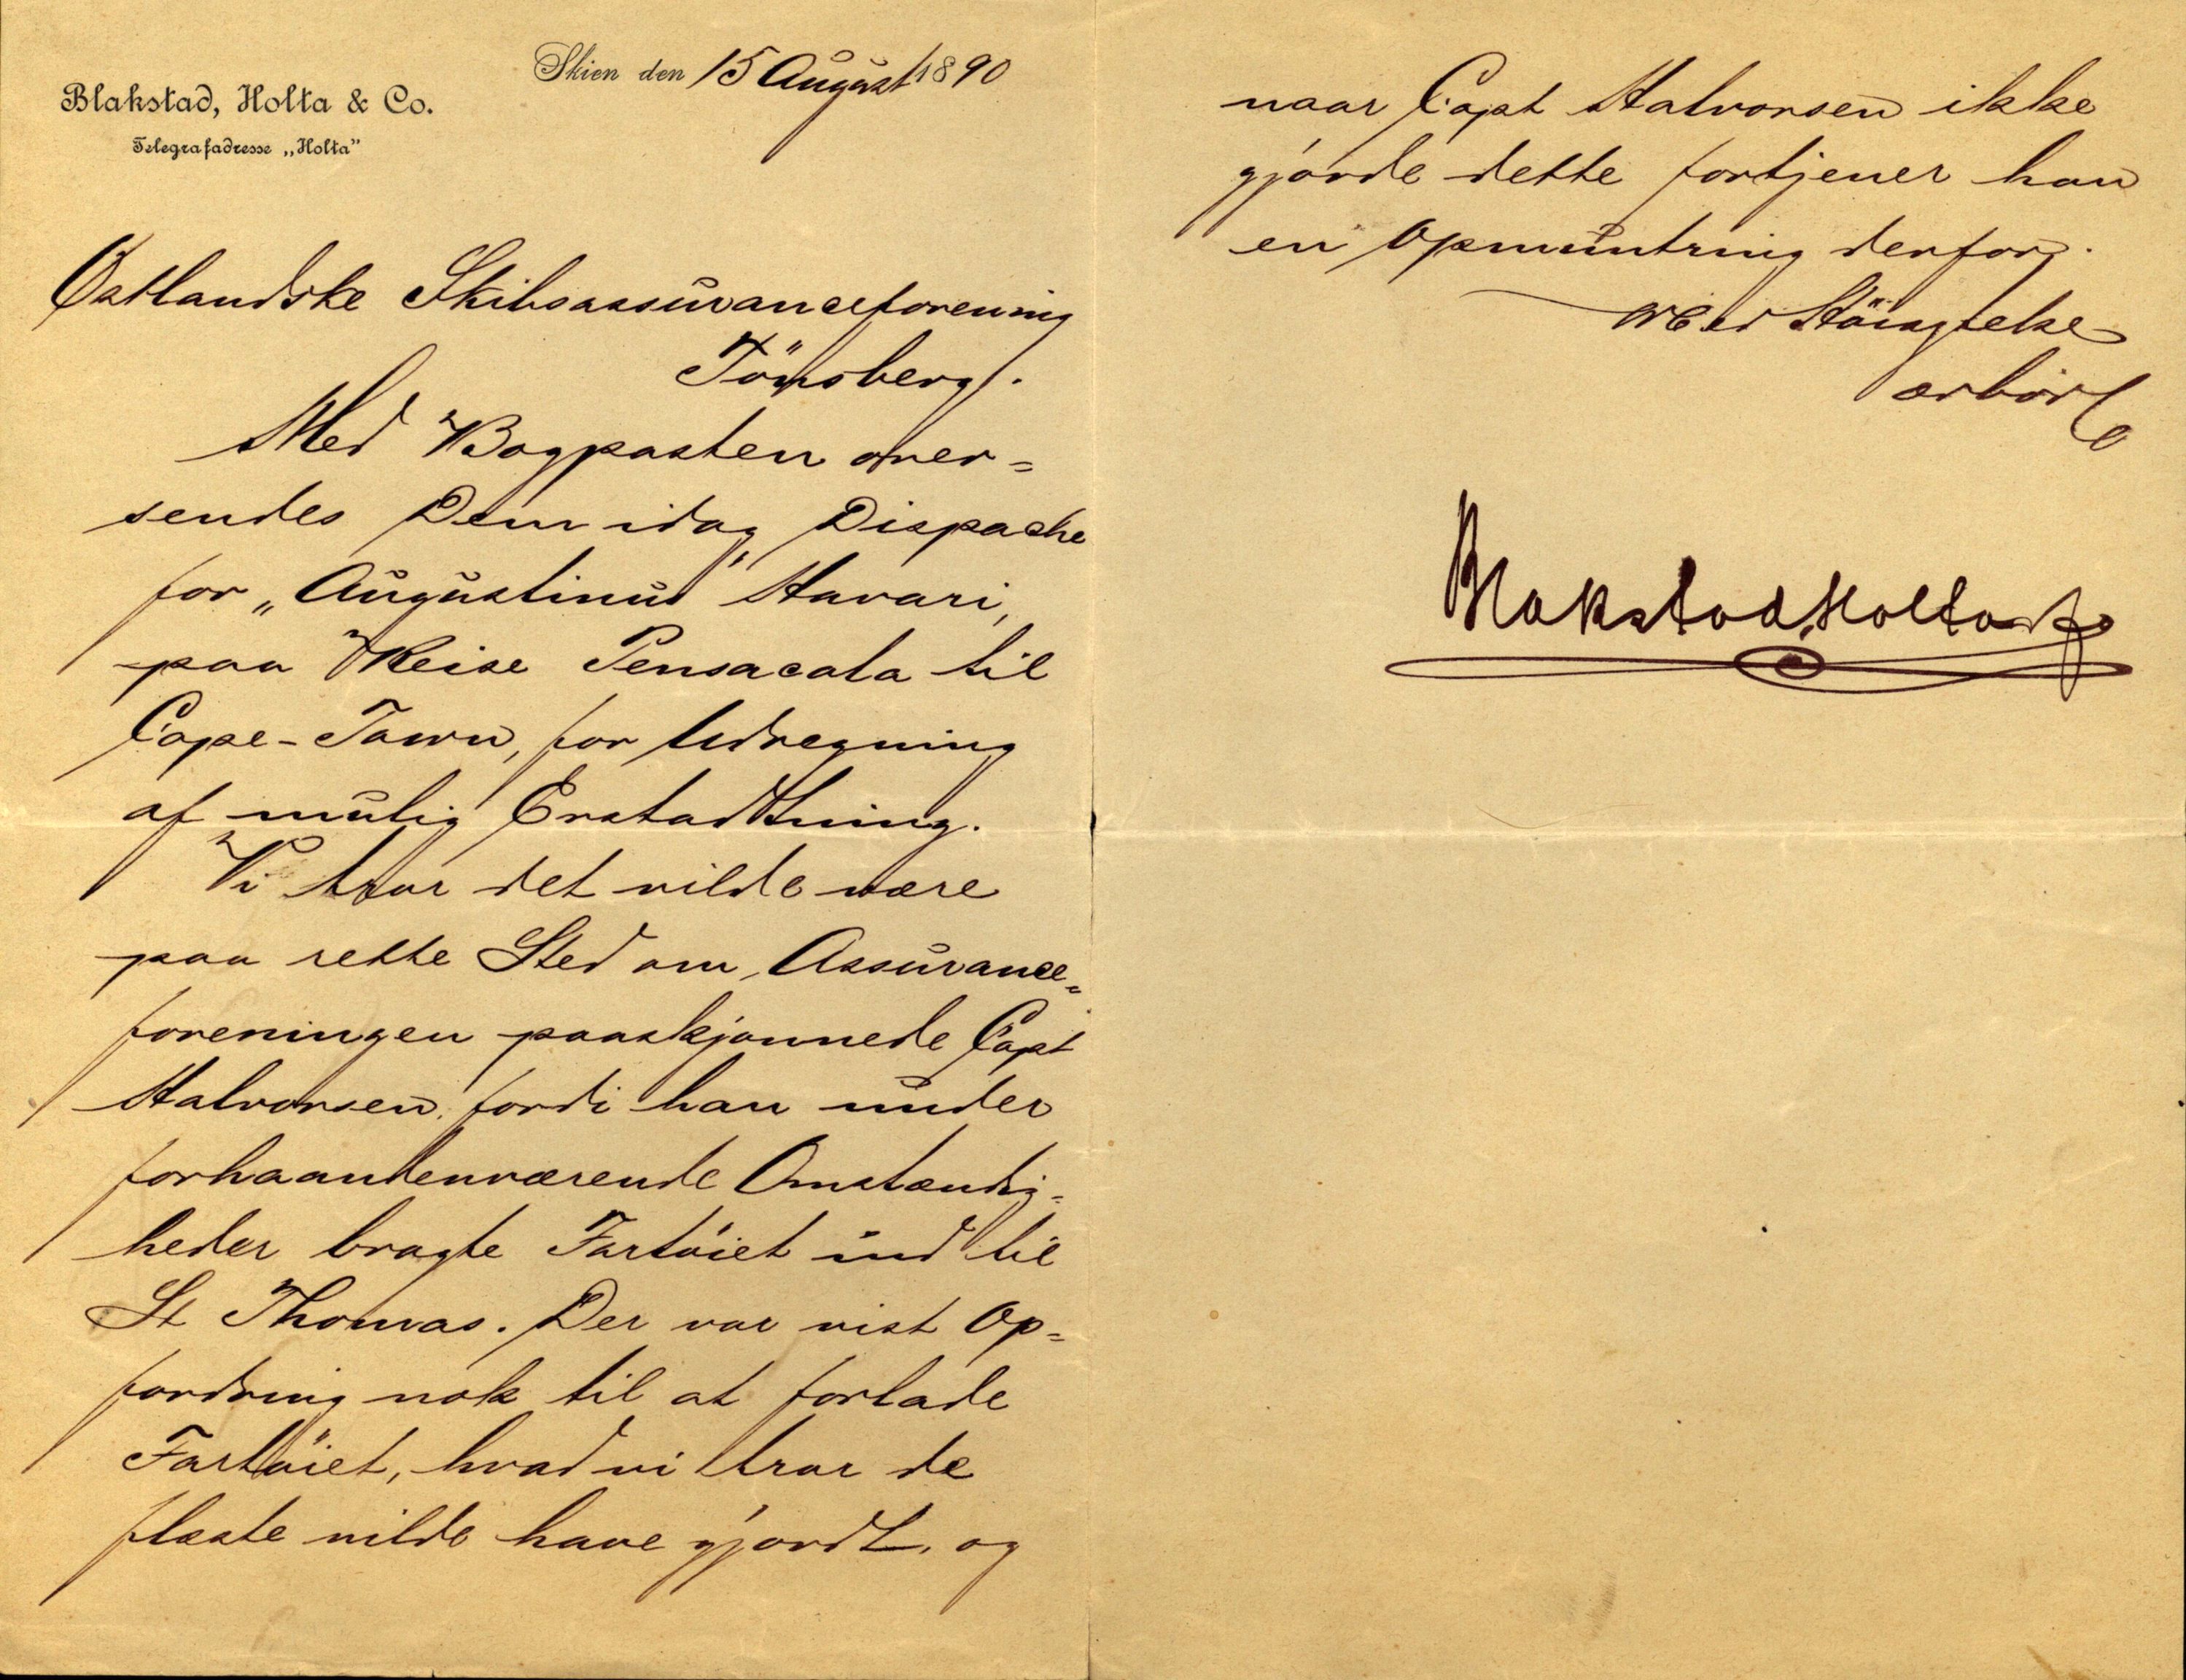 Skien den 15 August 1890
Blakstad, Holta & Co.
Telegrafadresse „Holta”
Østlandske Skibsassuranceforening
Tönsberg.
Med Bogposten over=
sendes Dem idag Dispache
for „Augustinus” Havari,
paa Reise Pensacola til
Cape-Town, for Udregning
af mulig Erstadtning.
Vi tror det vilde være
paa rette Sted om Assurance=
foreningen paaskjønnede Capt
Halvorsen fordi han under
forhaandenværende Omstændig=
heder bragte Fartöiet ind til
St Thomas. Der var vist Op=
fordring nok til at forlade
Fartöiet, hvad vi tror de
fleste vilde have gjordt, og
naar Capt Halvorsen ikke
gjorde dette fortjener han
en Opmuntring derfor.
Med Höiagtelse
ærbör
Blakstad, Holta & Co